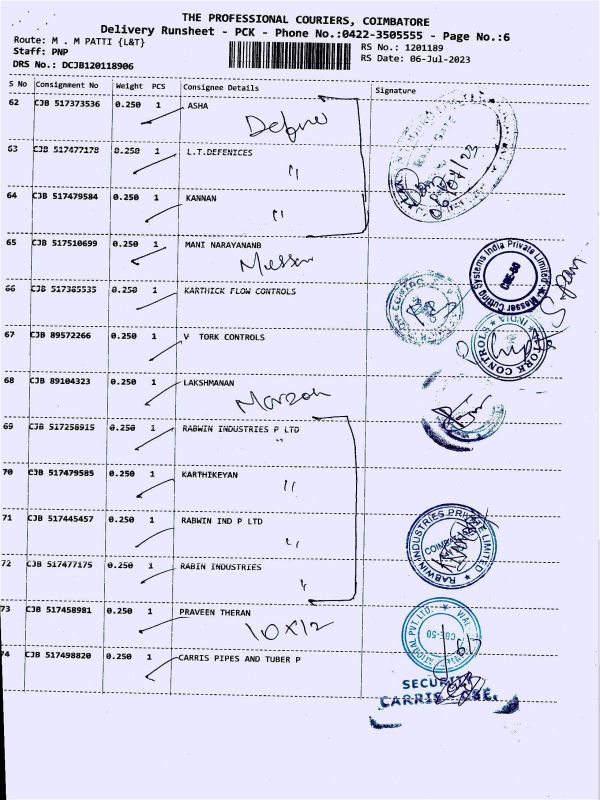 THE PROFESSIONAL COURIERS, COIMBATORE
Delivery Runsheet - PCK - Phone No.:0422-3505555 - Page No.:6
Route: M . M PATTI {L&T}
RS No.: 1201189
Staff: PNP
RS Date: 06-Jul-2023
DRS No.: DCJB120118906
S No Consignment No Weight PCS Consignee Details Signature
62 CJB 517373536 0.250 1 ASHA
63 CJB 517477178 0.250 1 L.T.DEFENICES
"
64 CJB 517479584 0.250 1 KANNAN
"
06/07/23
65 CJB 517510699 0.250 1 MANI NARAYANANB
Messer Cutting Systems India Private Limited
CBE-50
66 CJB 517385535 0.250 1 KARTHICK FLOW CONTROLS
67 CJB 89572266 0.250 1 V TORK CONTROLS
V-TORK CONTROLS ★ INDIA ★
68 CJB 89104323 0.250 1 LAKSHMANAN
69 CJB 517258915 0.250 1 RABWIN INDUSTRIES P LTD
"
70 CJB 517479585 0.250 1 KARTHIKEYAN
"
71 CJB 517445457 0.250 1 RABWIN IND P LTD
"
RABWIN INDUSTRIES PRIVATE LIMITED
72 CJB 517477175 0.250 1 RABIN INDUSTRIES
"
73 CJB 517458981 0.250 1 PRAVEEN THERAN
10x12
PVT. LTD.
CBE-50
74 CJB 517498820 0.250 1 CARRIS PIPES AND TUBER P
SECURITY
CARRIS CBE.